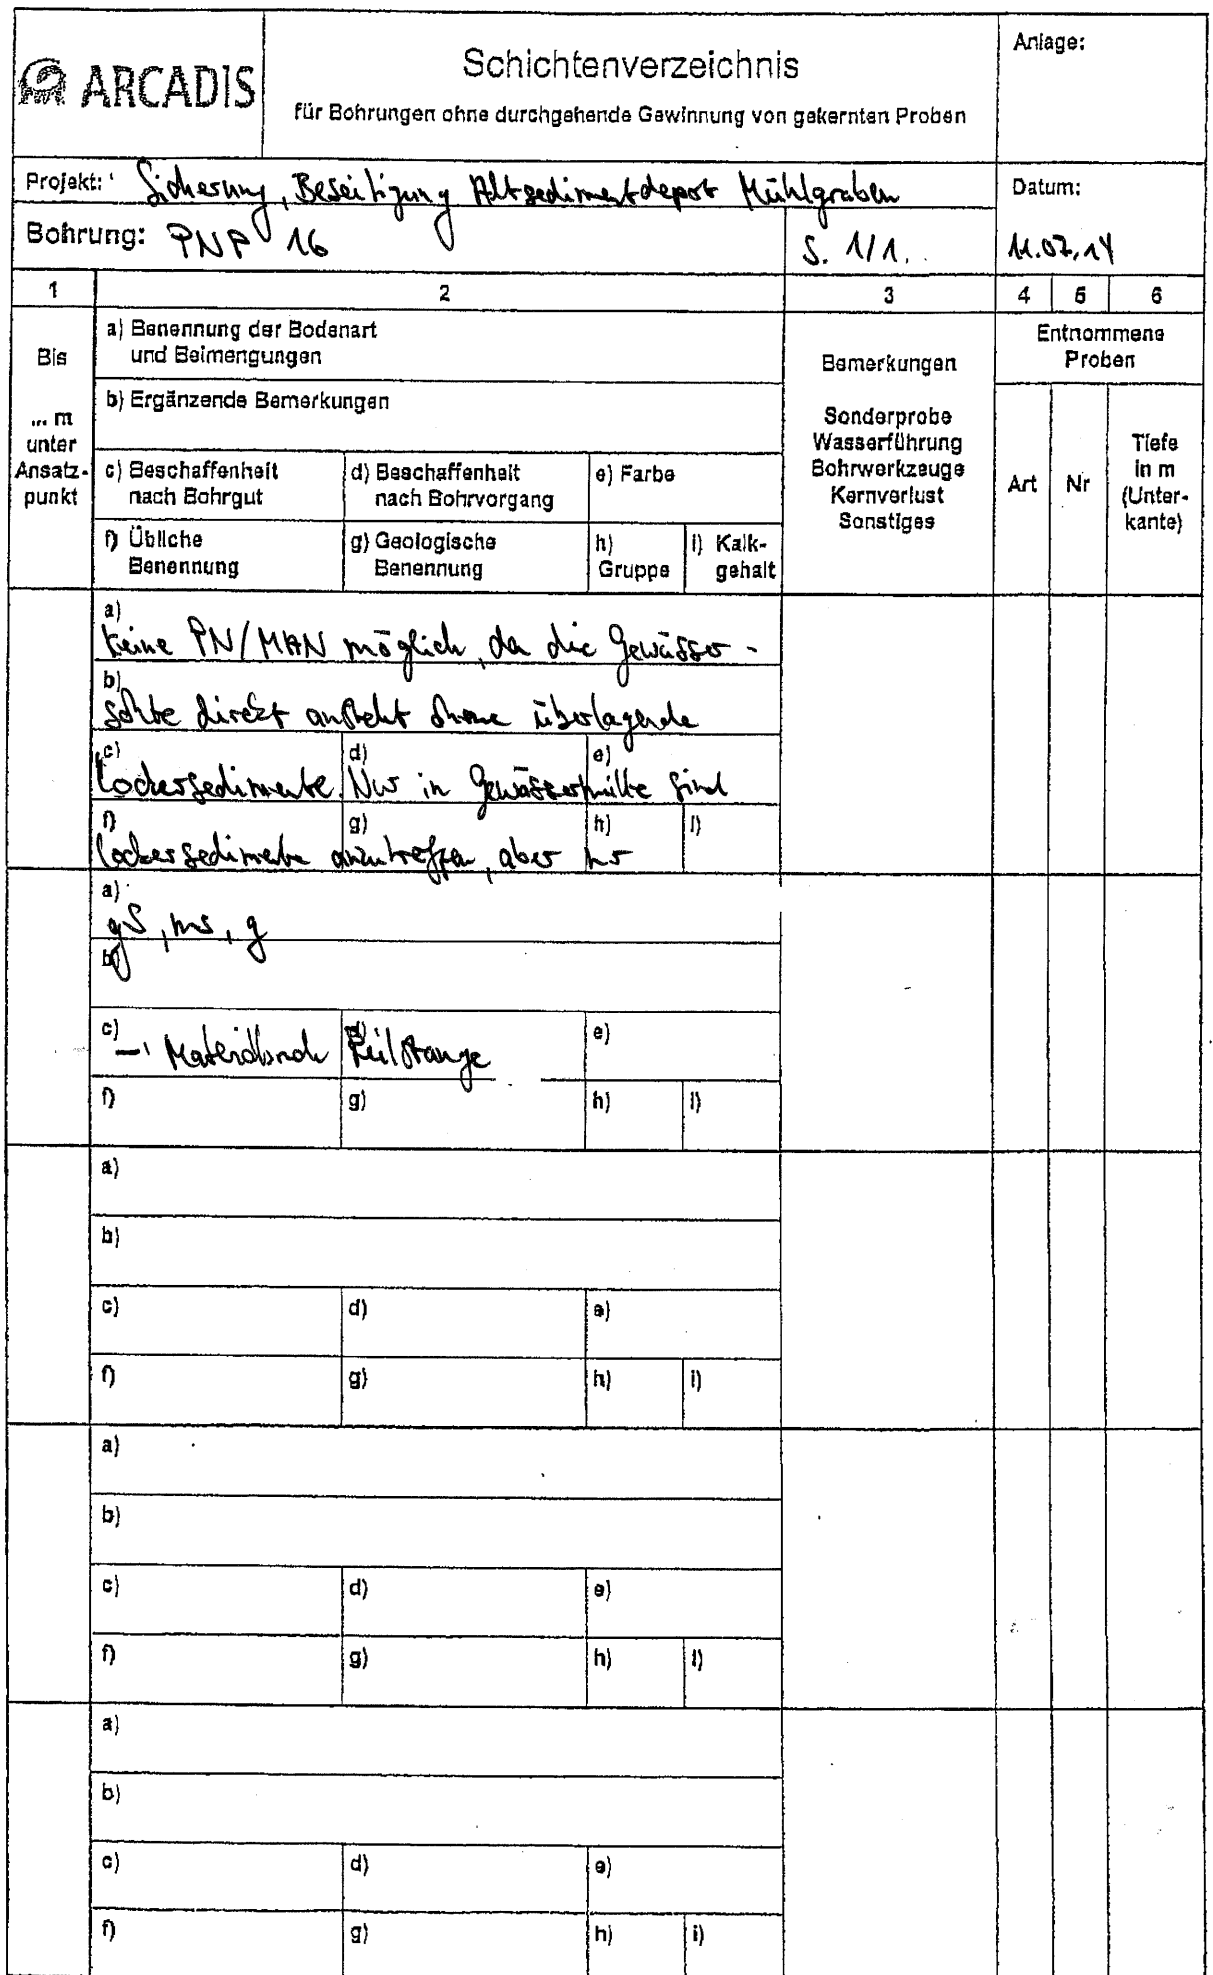 ARCADIS
Schichtenverzeichnis
für Bohrungen ohne durchgehende Gewinnung von gekernten Proben
Anlage:
Projekt: Sicherung, Beseitigung Altsedimentdepot Mühlgraben
Datum:
Bohrung: PNP 16
S. 1/1.
11.07.14
1 2 3 4 5 6
Bis
... m
unter
Ansatz-
punkt
a) Benennung der Bodenart
und Beimengungen
b) Ergänzende Bemerkungen
c) Beschaffenheit
nach Bohrgut
d) Beschaffenheit
nach Bohrvorgang
e) Farbe
f) Übliche
Benennung
g) Geologische
Benennung
h)
Gruppe
i) Kalk-
gehalt
Bemerkungen
Sonderprobe
Wasserführung
Bohrwerkzeuge
Kernverlust
Sonstiges
Entnommene
Proben
Art
Nr
Tiefe
in m
(Unter-
kante)
a)
keine PN/MAN möglich, da die Gewässer-
b)
sohle direkt ansteht ohne überlagernde
c) d) e)
Lockersedimente. Nur in Gewässermitte sind
f) g) h) i)
Lockersedimente anzutreffen, aber nur
a)
gS, ms, g
b)
c) d) e)
Peilstange
f) g) h) i)
a)
b)
c) d) e)
f) g) h) i)
a)
b)
c) d) e)
f) g) h) i)
a)
b)
c) d) e)
f) g) h) i)